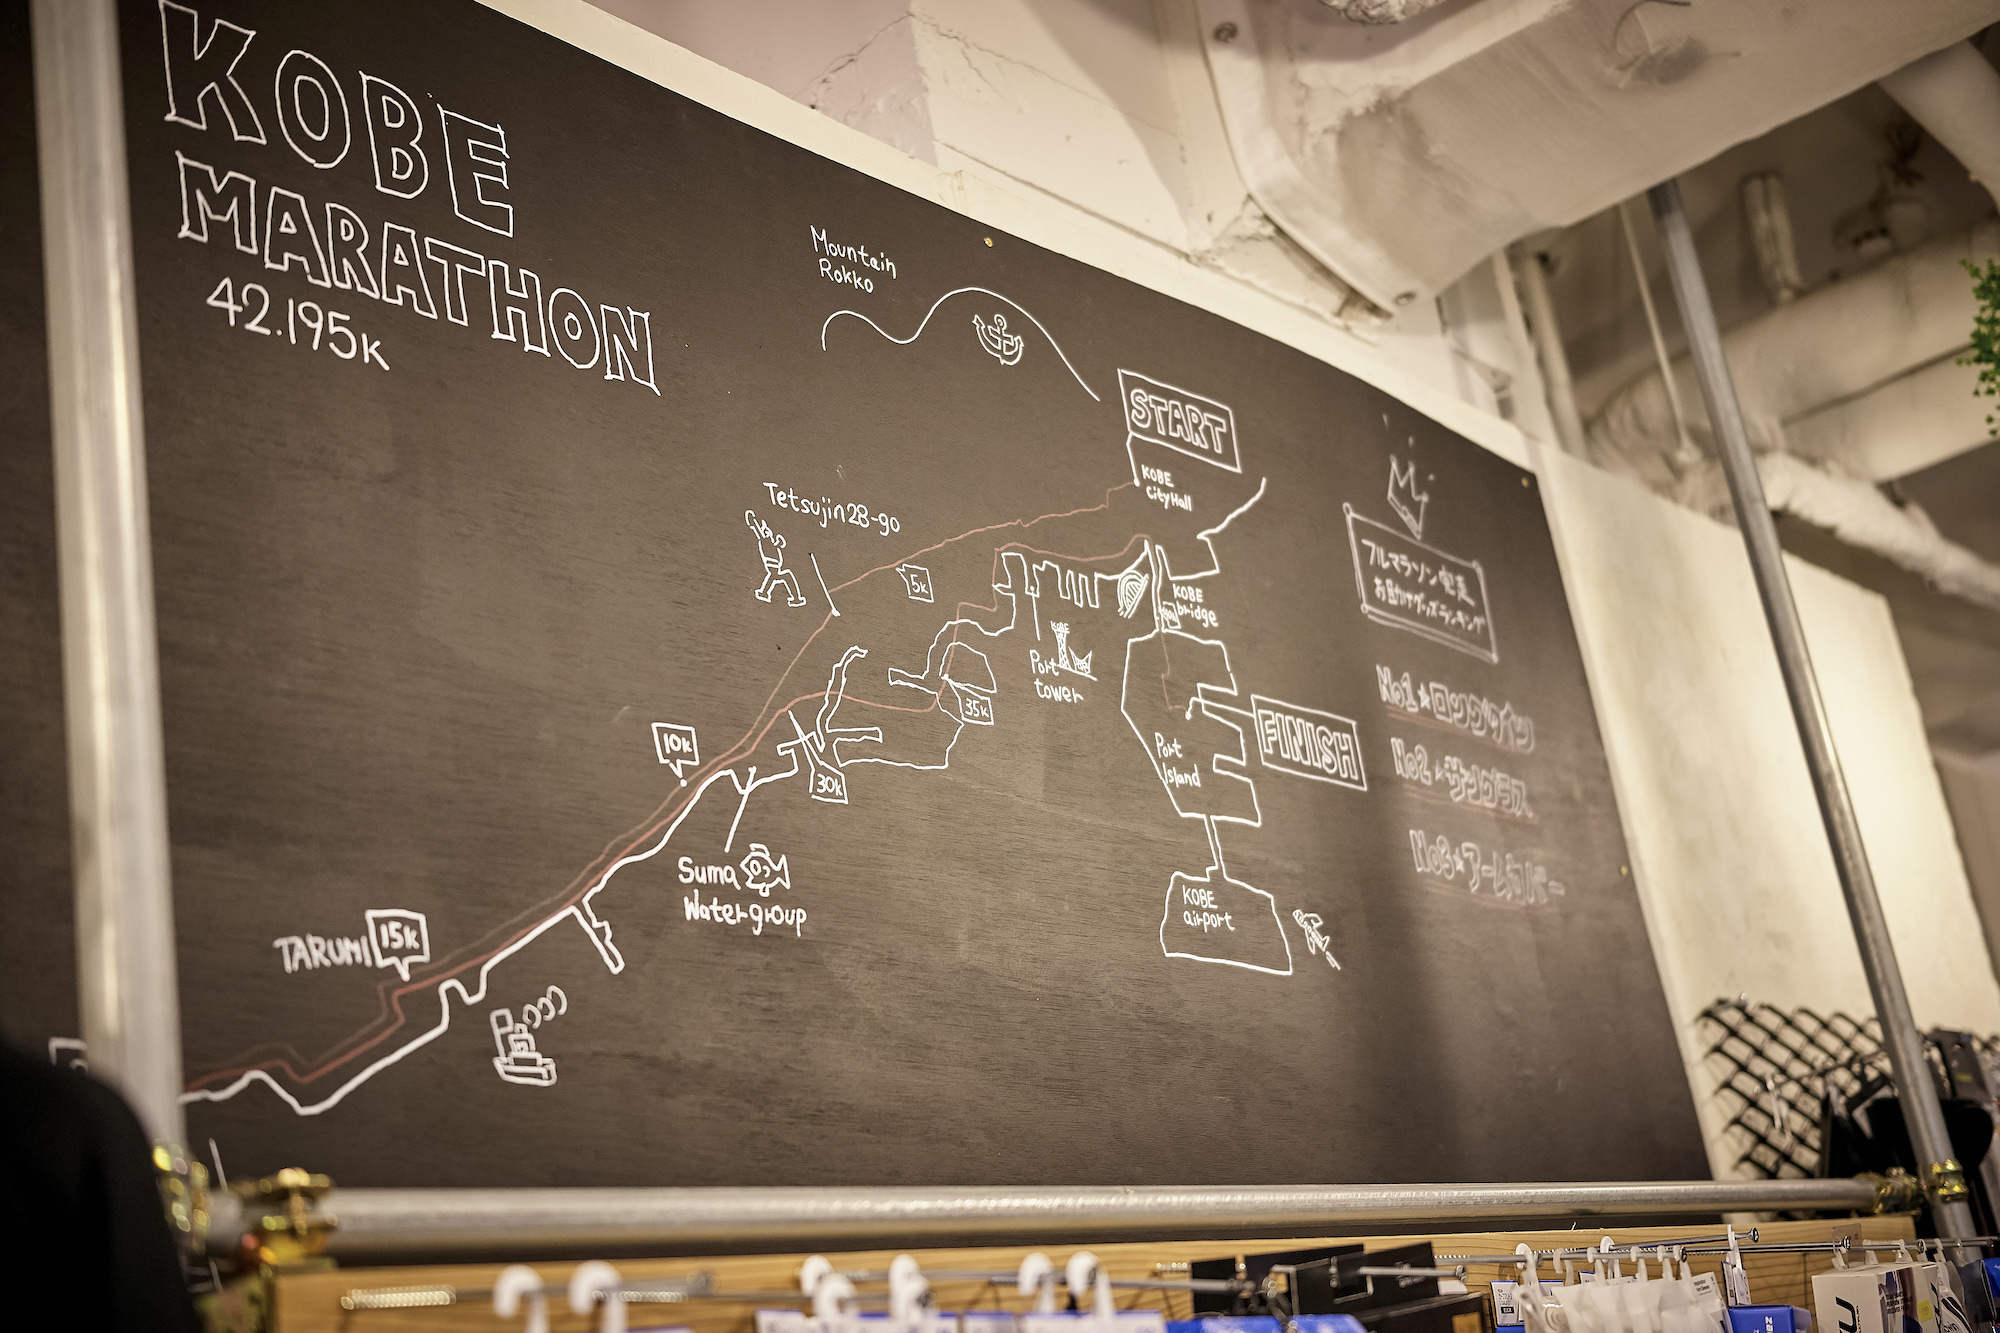 KOBE
MARATHON
42.195K
Mountain
Rokko
START
KOBE
CityHall
Tetsujin28-go
5k
KOBE
bridge
KOBE
Port
tower
35k
10k
30k
FINISH
Port
Island
Suma
Watergroup
TARUMI
15k
KOBE
airport
フルマラソン完走
お助けグッズランキング
No1★ロングタイツ
No2★サングラス
No3★アームカバー